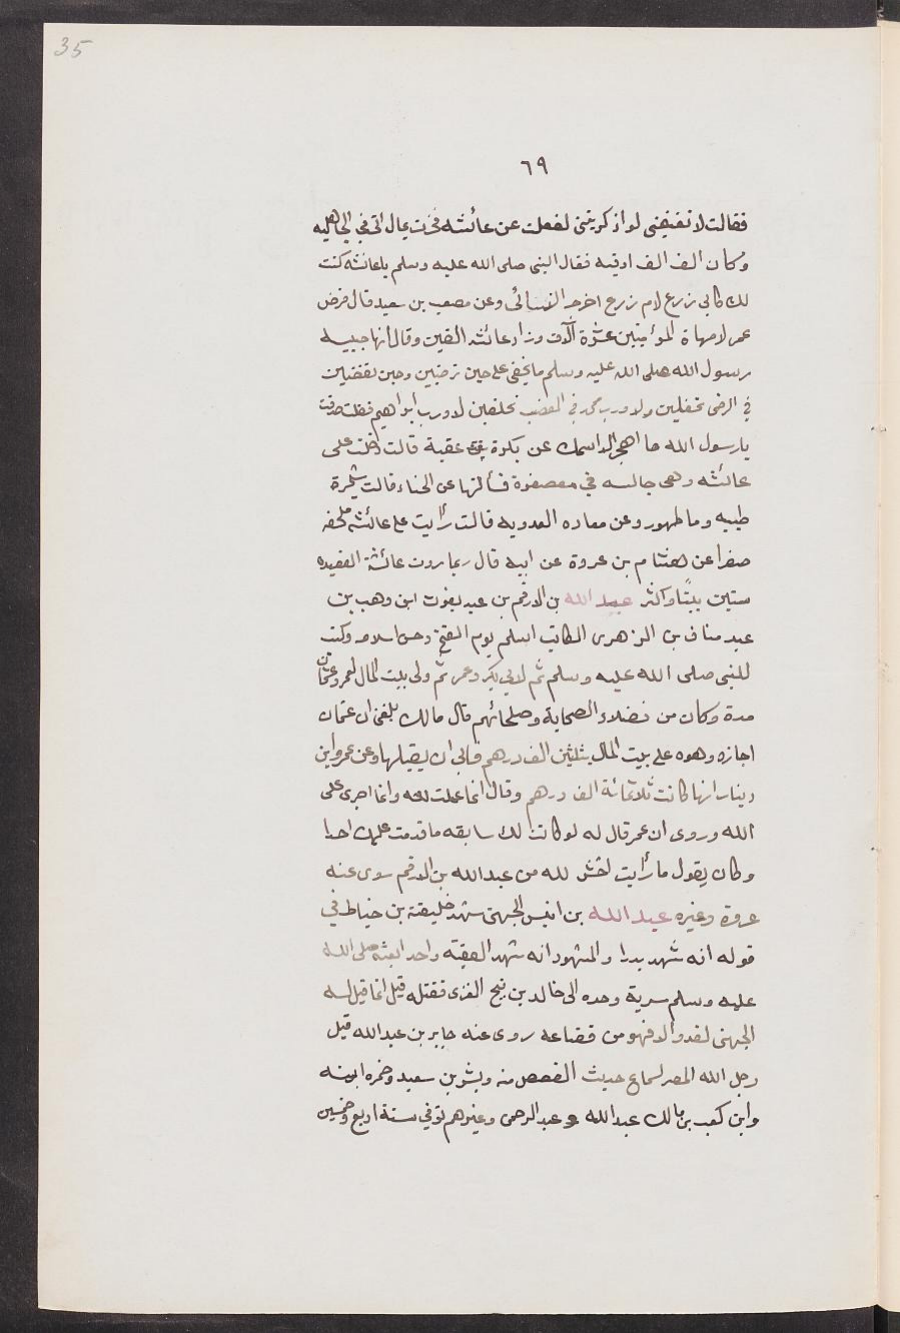 35
٦٩
فقالت لا تغيضنى لو اذكريتنى لفعلت عن عائشه فخرت بمال ابى في الجاهليه
وكان الف الف اوقيه فقال النبى صلى الله عليه وسلم ياعائشه كنت
لك كابى زرع لام زرع اخرجه النسائى وعن مصعب بن سعيد قال فرض
عمر لامهاة المؤمنين عشرة آلاف وزاد عائشه الفين وقال انها حبيبه
رسول الله صلى الله عليه وسلم ما يخفى على حين ترضين وحين تغضبين
في الرضى تحلفين ولا ورب محمد في الغضب تحلفين لا ورب ابراهيم فقلت صدقت
يارسول الله ما اهجر الا اسمك عن بكرة بنت عقبة قالت دخلت على
عائشه وهى جالسه في معصفرة فسألتها عن الحناء قالت شجرة
طيبه وما طهور وعن معاده العدويه قالت رأيت على عائشه ملحفه
صفرا عن هشام بن عروة عن ابيه قال ربما روت عائشة القصيده
ستين بيتًا واكثر عبيد الله بن الارقم بن عبد يغوث ابن وهب بن
عبد مناف بن الزهرى الكاتب اسلم يوم الفتح وحسن اسلامه وكتب
للنبى صلى الله عليه وسلم ثم لابى بكر وعمر ثم ولى بيت المال لعمر وعثمان
مدة وكان من فضلاء الصحابة وصلحائهم قال مالك بلغنى ان عثمان
اجازه وهوه على بيت المال بثلثين الف درهم فابى ان يقبلها وعن عمرو ابن
دينار انها كانت ثلاثمائة الف درهم وقال انما عملت لله وانما اجرى على
الله وروى ان عمر قال له لو كانت لك سابقه ما قدمت عليك احدا
وكان يقول ما رأيت اخشى لله من عبد الله بن الارقم روى عنه
عروة وغيره عبد الله بن انيس الجهنى شهد خليفة بن خياط في
قوله انه شهد بدرا والمشهود انه شهد العقبة واحد ابعثه صلى الله
عليه وسلم سرية وحده الى خالد بن نبيح العنزى فقتله قيل انما قيل له
الجهنى لقد والا فهو من قضاعه روى عنه جابر بن عبد الله قيل
رحل الله المصر لسماع حديث القصص منه وبشر بن سعيد وضمره ابنه
وابن كعب بن مالك عبد الله و عبد الرحمن وغيرهم توفي سنة اربع وخمسين